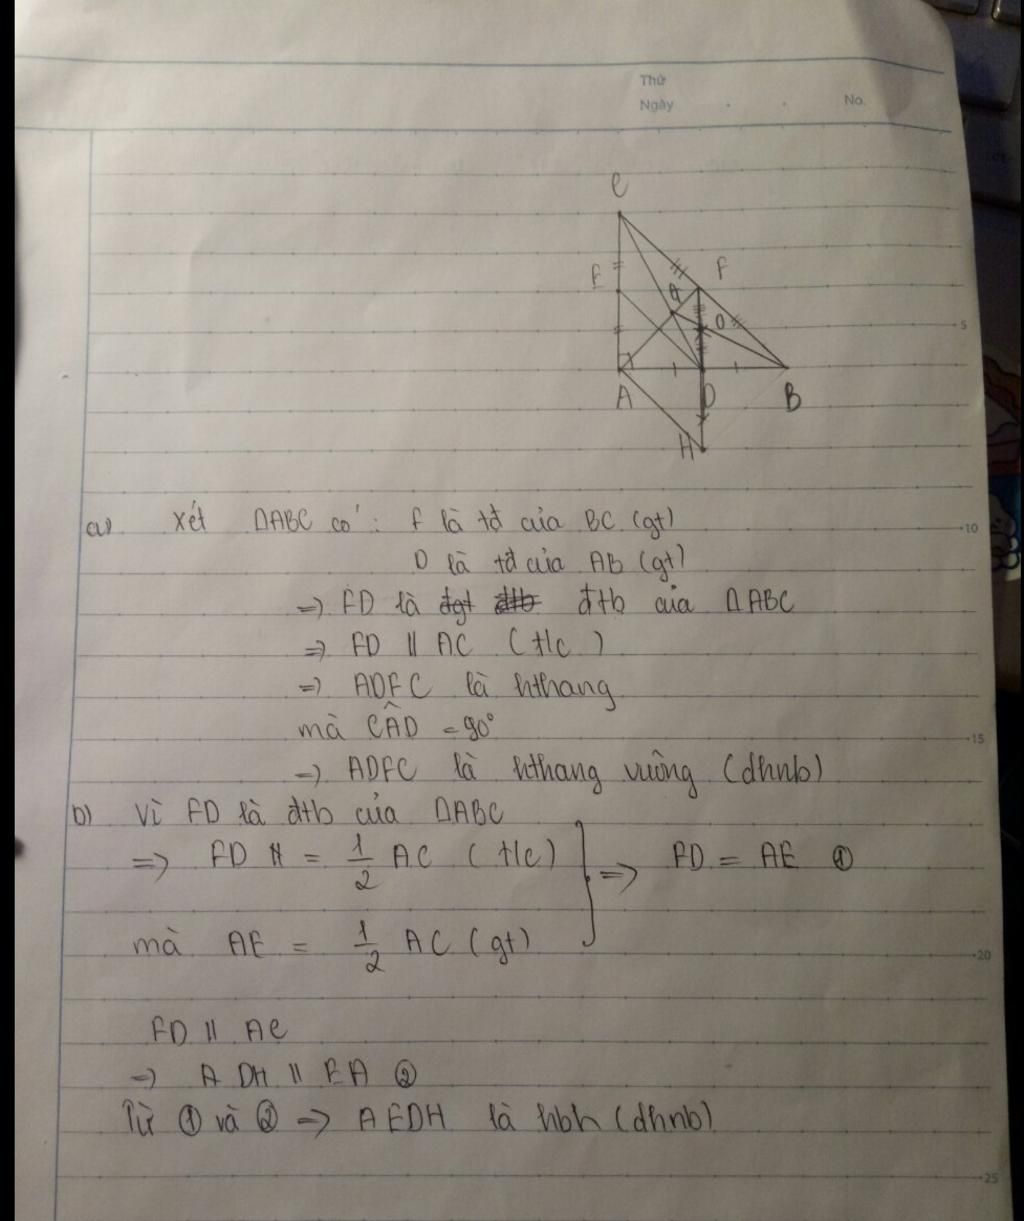 Thứ
Ngày . . No.
C
E F
G
O
5
A D B
H
a) Xét ΔABC có: F là tđ của BC (gt)
10
D là tđ của AB (gt)
=> FD là đtb của ΔABC
=> FD || AC (t/c)
=> ADFC là hthang
mà CÂD = 90°
15
=> ADFC là hthang vuông (dhnb)
b) Vì FD là đtb của ΔABC
=> FD = 1/2 AC (t/c)
=> FD = AE ①
mà AE = 1/2 AC (gt)
20
FD || AC
=> DH || EA ②
Từ ① và ② => AEDH là hbh (dhnb)
25